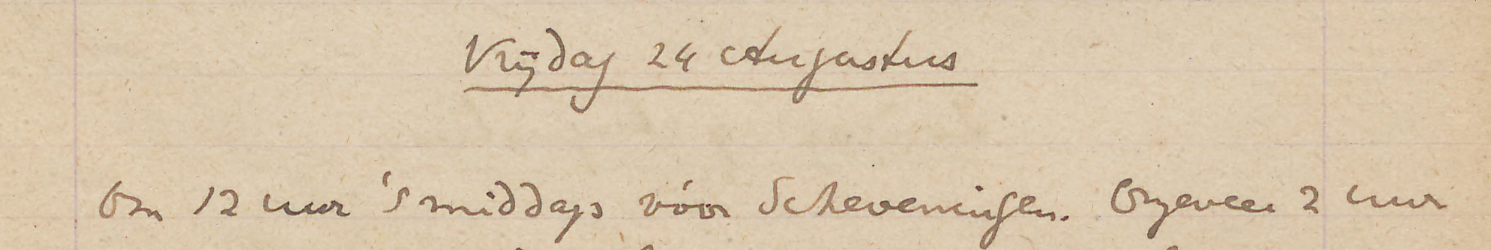 Vrijdag 24 Augustus
Om 12 uur 's middags vóor Scheveningen. Ongeveer 2 uur